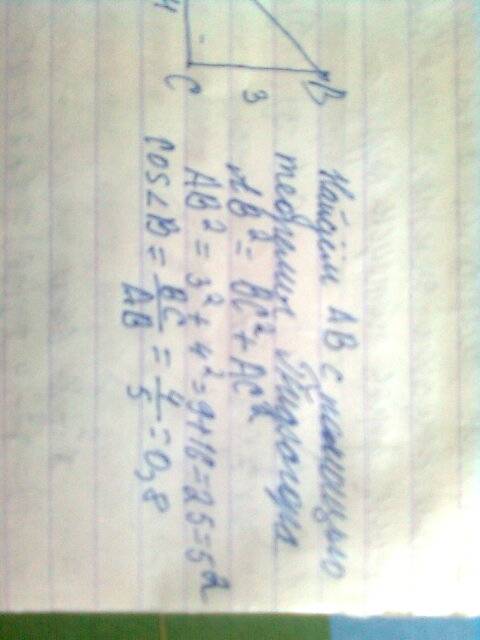 4
C
3
B
Найдём AB с помощью
теоремы Пифагора
AB² = BC² + AC²
AB² = 3² + 4² = 9+16 = 25 = 5²
cos∠B = BC/AB = 4/5 = 0,8